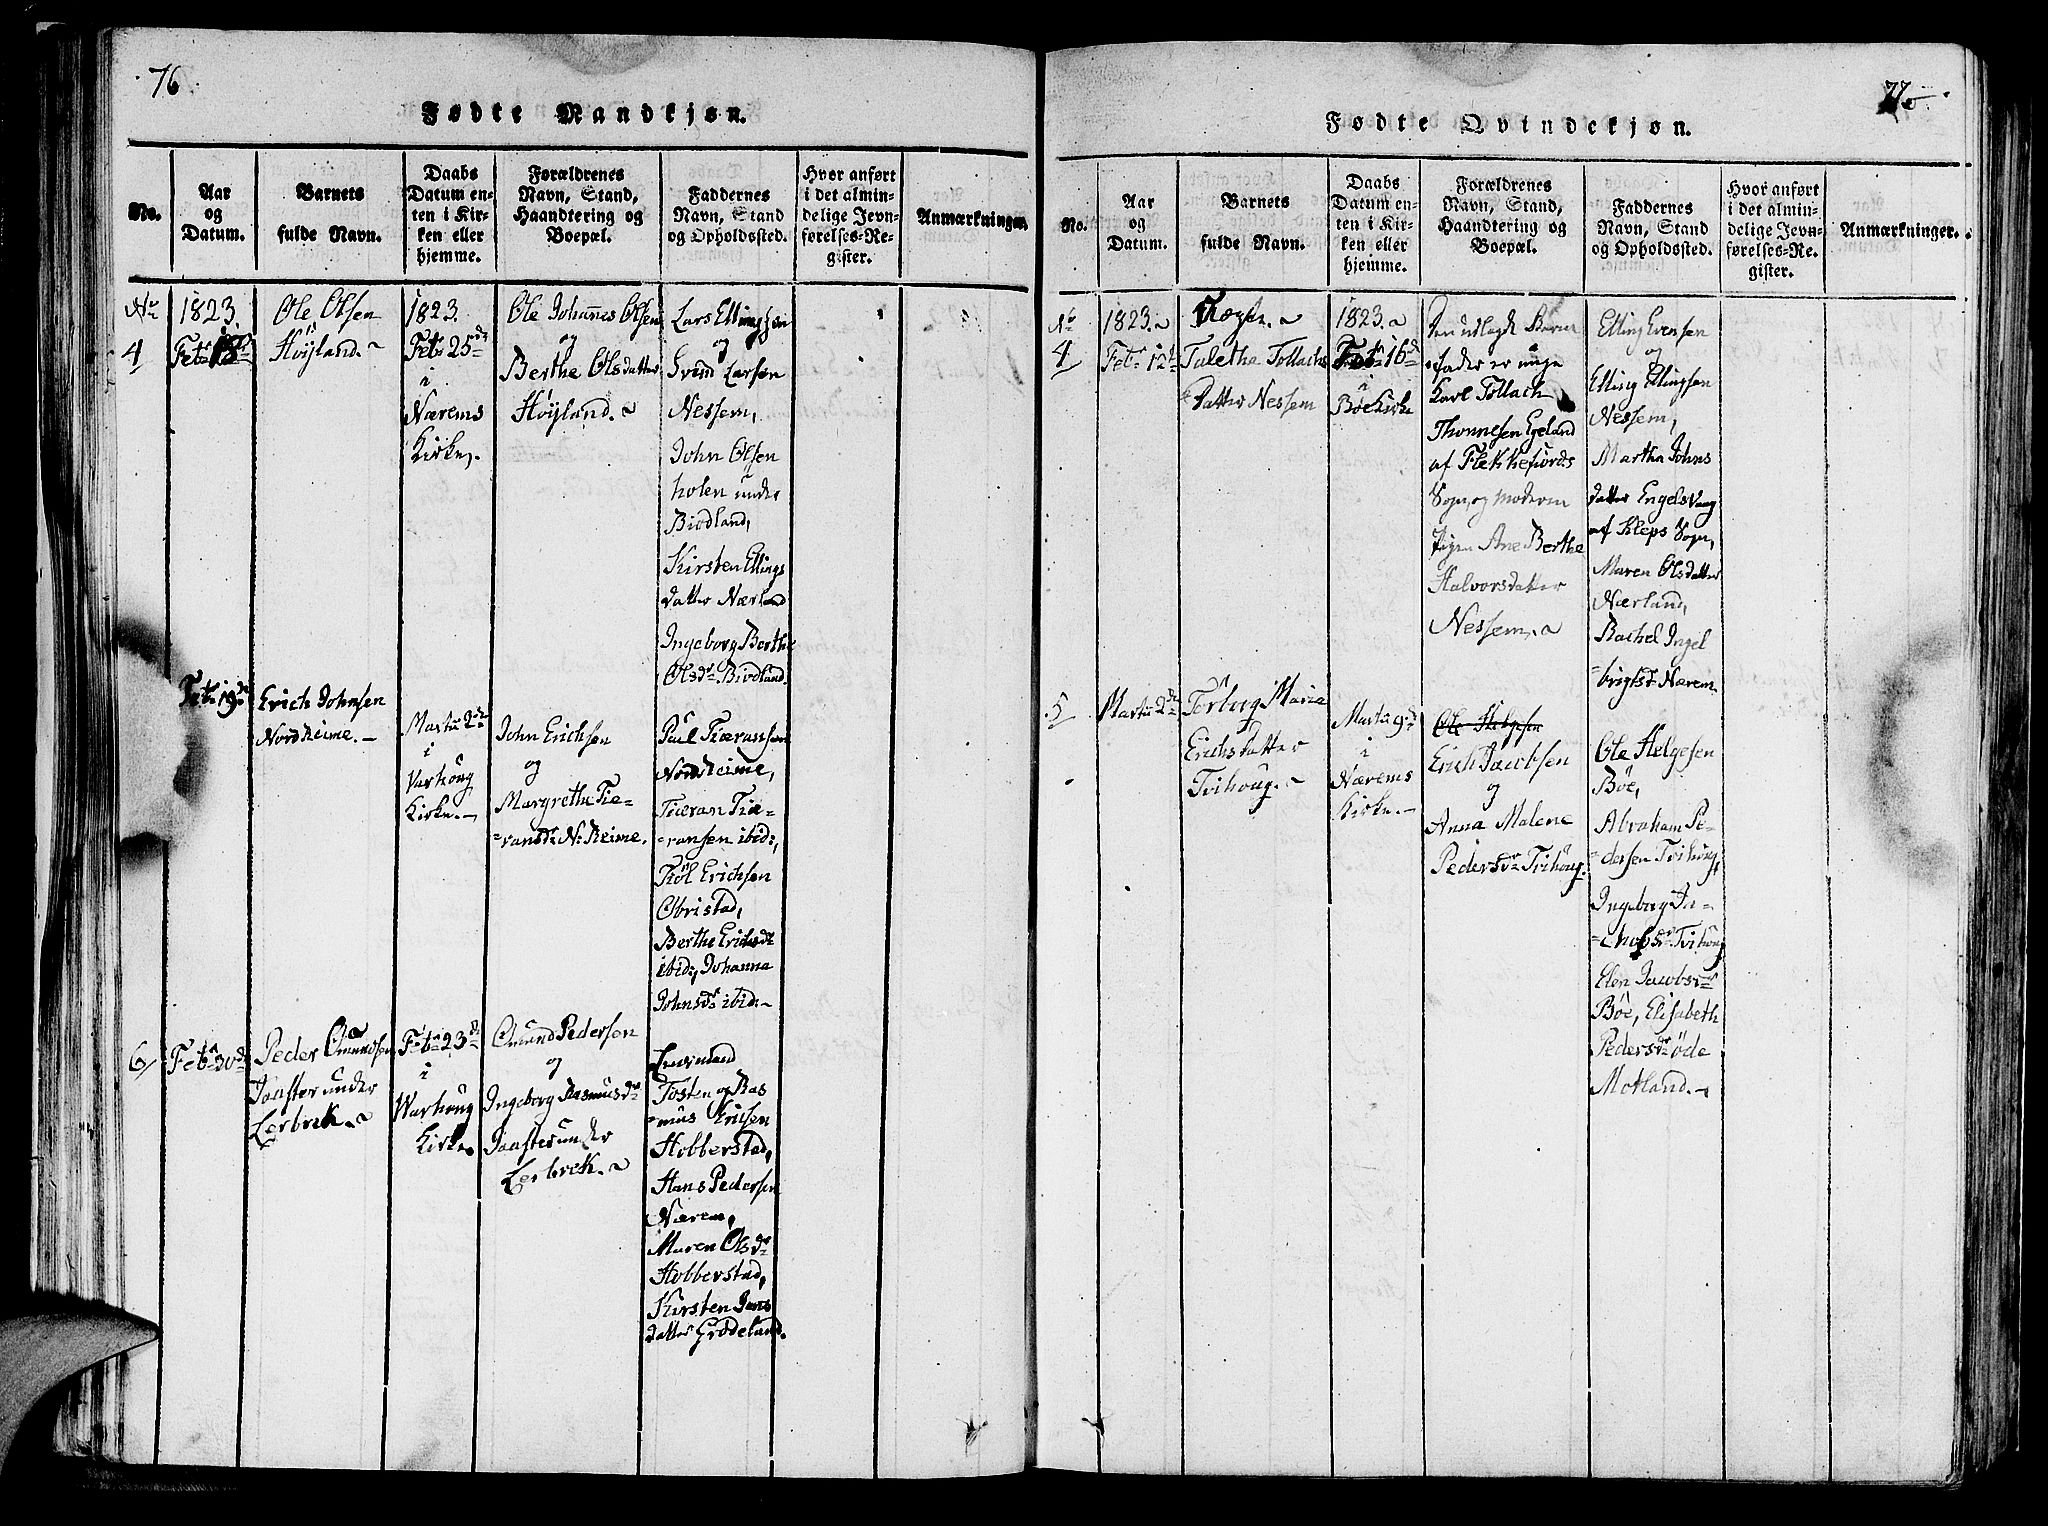 76.
Fødte Mandkjøn.
No.
Aar
og
Datum.
Barnets
fulde Navn.
Daabs
Datum en-
ten i Kir-
ken eller
hjemme.
Forældrenes
Navn, Stand,
Haandtering og
Boepæl.
Faddernes
Navn, Stand
og Opholdssted.
Hvor anført
i det almin-
delige Jevn-
førelses-Re-
gister.
Anmærkninger.
No
4
1823.
Feb: 18de
Ole Olsen
Höyland.
1823.
Feb: 25de
i
Nærems
Kirke.
Ole Johannes Olsen
og
Berthe Olsdatter
Höyland.
Lars Ellingsen
og
Svend Larsen
Nessem,
John Olsen
holen under
Birdland,
Kirsten Ellings
datter Nærland
Ingeborg Berthe
Olsdr Birdland.
Feb: 19de
Erich Johnsen
Nordheime.
Marti 2de
i
Varhoug
Kirke.
John Erichsen
og
Margretha Tie=
=ransdr N: Reime.
Paul Tiæransen
Nordreime,
Tiæran Tiæ=
=ransen ibid:,
Kiöl Erichsen
Obristad,
Berthe Erichsdr
ibid:, Johanna
Johnsdr ibid:
6
Feb: 20de
Peder Omundsen
Taaster under
Lerbrek.
Feb: 23de
i
Warhoug
Kirke.
Omund Pedersen
og
Ingeborg Rasmusdr
Taaster under
Lerbrek.
Tosten og Ras
=mus Ericsen
Hobberstad,
Hans Pedersen
Nærem,
Maren Olsdr
Hobberstad,
Kirsten Jans
datter Grödeland.
77.
Fødte Qvindekjøn.
No.
Aar
og
Datum.
Barnets
fulde Navn.
Daabs
Datum en-
ten i Kir-
ken eller
hjemme.
Forældrenes
Navn, Stand,
Haandtering og
Boepæl.
Faddernes
Navn, Stand
og Opholdssted.
Hvor anført
i det almin-
delige Jevn-
førelses-Re-
gister.
Anmærkninger.
No
4
1823.
Feb: 12te
Taletha Tollachs
Datter Nessem
1823.
Feb: 16de
i
Böe Kirke
Den udlagde Barne
fader er unge
Karl Tollach
Thonnesen Egeland
af Flekkefiords
Sogn, og moderen
Pigen Ane Berthe
Halvorsdatter
Nessem.
Elling Evensen
og
Elling Ellingsen
Nessem,
Martha Johns
datter Engelsvaag
af Kleps Sogn,
Maren Olsdatter
Nærland,
Rachel Ingel
=brigtsdr Nærem.
5
Marti 2de
Torborg Marie
Erichsdatter
Tvihoug.
Marti 9de
i
Nærems
Kirke.
Ole Helgesen
Erich Jacobsen
og
Anna Malene
Pedersdr Tvihoug.
Ole Helgesen
Böe,
Abraham Pe=
=dersen Tvihoug,
Ingeborg Ja=
=chobsdr Tvihoug
Elen Jacobsdr
Böe, Elisabeth
Pedersdr Öde
Motland.